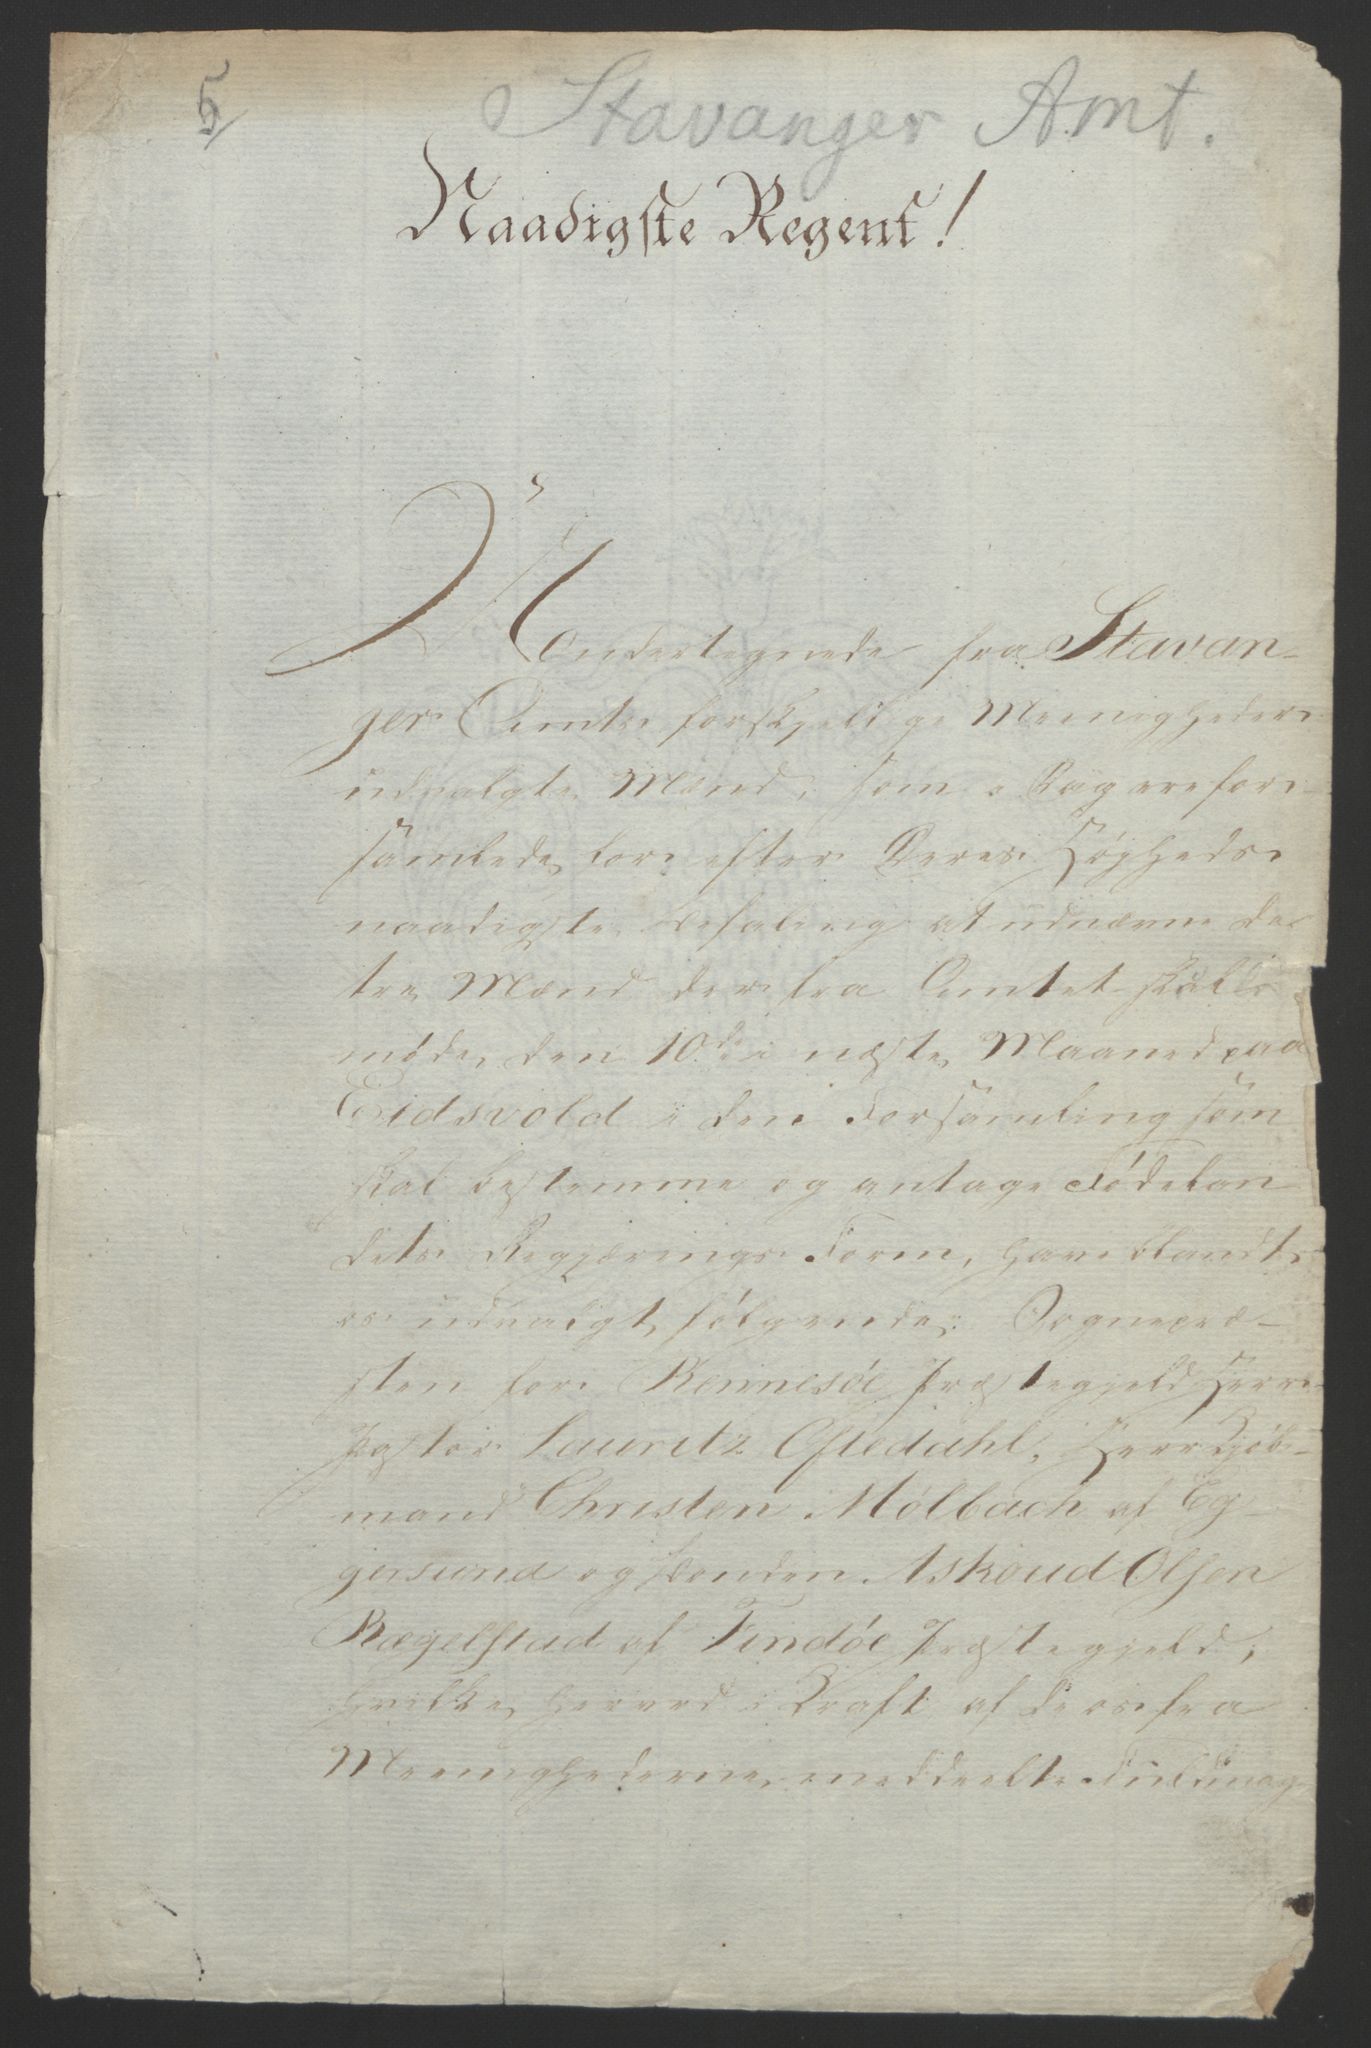 5/
Stavanger Amt.
Naadigste Regent!
Undertegnede fra Stavan-
ger Amts forskjellige Meenigheder
udvalgte Mænd, som ere for-
samlede for efter Deres Høyheds
naadigste Befaling at udnævne de
tre Mænd der fra Amtet skulle
møde den 10de i næste Maaned paa
Eidsvold i den Forsamling som
skal bestemme og antage Fødelan-
dets Regjærings Form, have blandt
os udvalgt følgende: Sognepræ-
sten for Rennesöe Præstegjeld Herr
Pastor Lauritz Oftedahl, Herr Kjøb-
mand Christen Mölbach af Eg-
gersund og Bonden Askoud Olsen
Rægelstad af Findöe Præstegjeld,
hvilke herved i Kraft af de os fra
Meenighederne meddeelte Fuldmag-